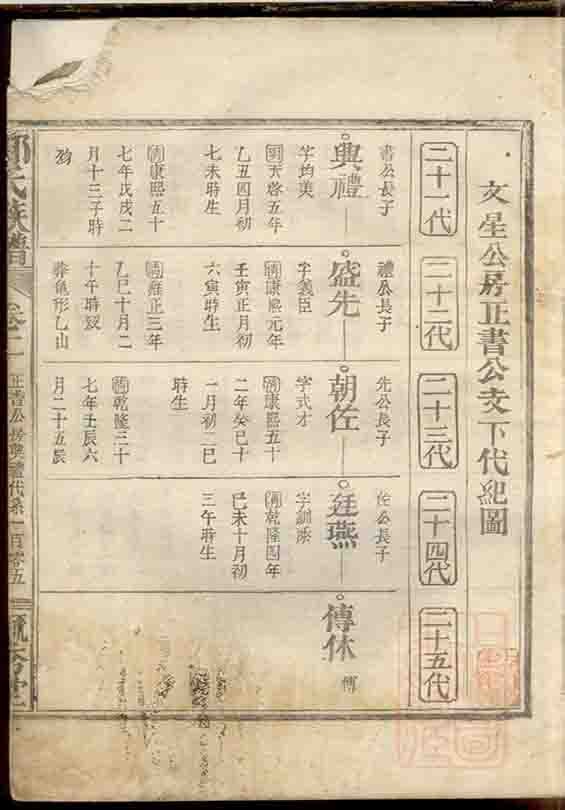 文星公房正書公支下代紀圖
二十一代
二十二代
二十三代
二十四代
二十五代
書公長子
興禮
字均美
明天啓五年
乙丑四月初
七未時生
清康熙五十
七年戊戌二
月十三子時
歿
禮公長子
盛先
字義臣
清康熙元年
壬寅正月初
六寅時生
清雍正三年
乙巳十月二
十午時歿
葬魚形乙山
先公長子
朝佐
字式才
清康熙五十
二年癸巳十
一月初二巳
時生
清乾隆三十
七年壬辰六
月二十五辰
佐公長子
廷燕
字訓添
清乾隆四年
己未十月初
三午時生
傳休
傳
氏族譜
卷二
正書公房興禮代系一百零五